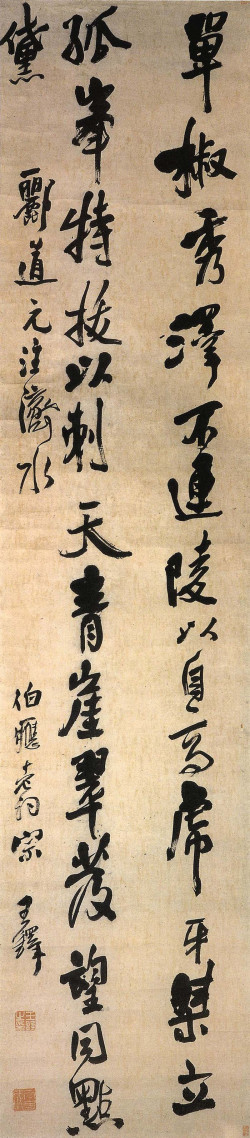 單椒秀澤不連陵以自高虎牙桀立
孤峯特拔以刺天青崖翠發望同點
黛
酈道元注濟水
伯]老詞宗
王鐸